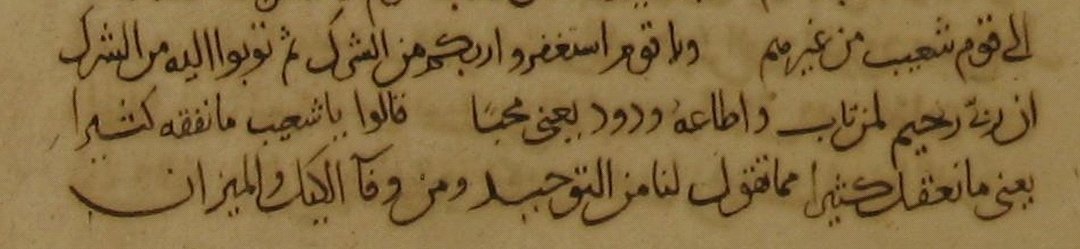 الى قوم شعيب من غيرهم ويا قوم استغفروا ربكم من الشرك ثم توبوا اليه من الشرك
ان ربى رحيم لمن تاب واطاعه ودود يعنى محبا قالوا يا شعيب ما نفقه كثيرا
يعنى ما نعقل كثيرا مما تقول لنا من التوحيد ومن وفآ الكيل والميزان